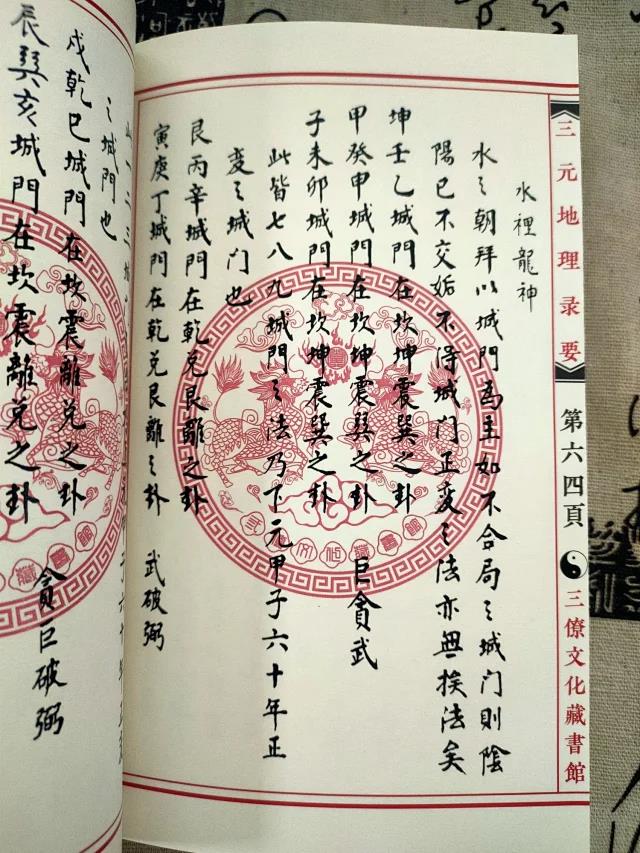 三元地理录要
第六四頁
三僚文化藏書館
水裡龍神
水之朝拜以城門為主如不合局之城门則陰
陽已不交姤不得城門正变之法亦無挨法矣
坤壬乙城門在坎坤震巽之卦
甲癸申城門在坎坤震巽之卦 巨貪武
子未卯城門在坎坤震巽之卦
此皆七八九城門之法乃下元甲子六十年正
变之城门也
艮丙辛城門在乾兑艮離之卦
寅庚丁城門在乾兑艮離之卦 武破弼
之城門也
戌乾巳城門在坎震離兑之卦
辰巽亥城門在坎震離兑之卦 貪巨破弼